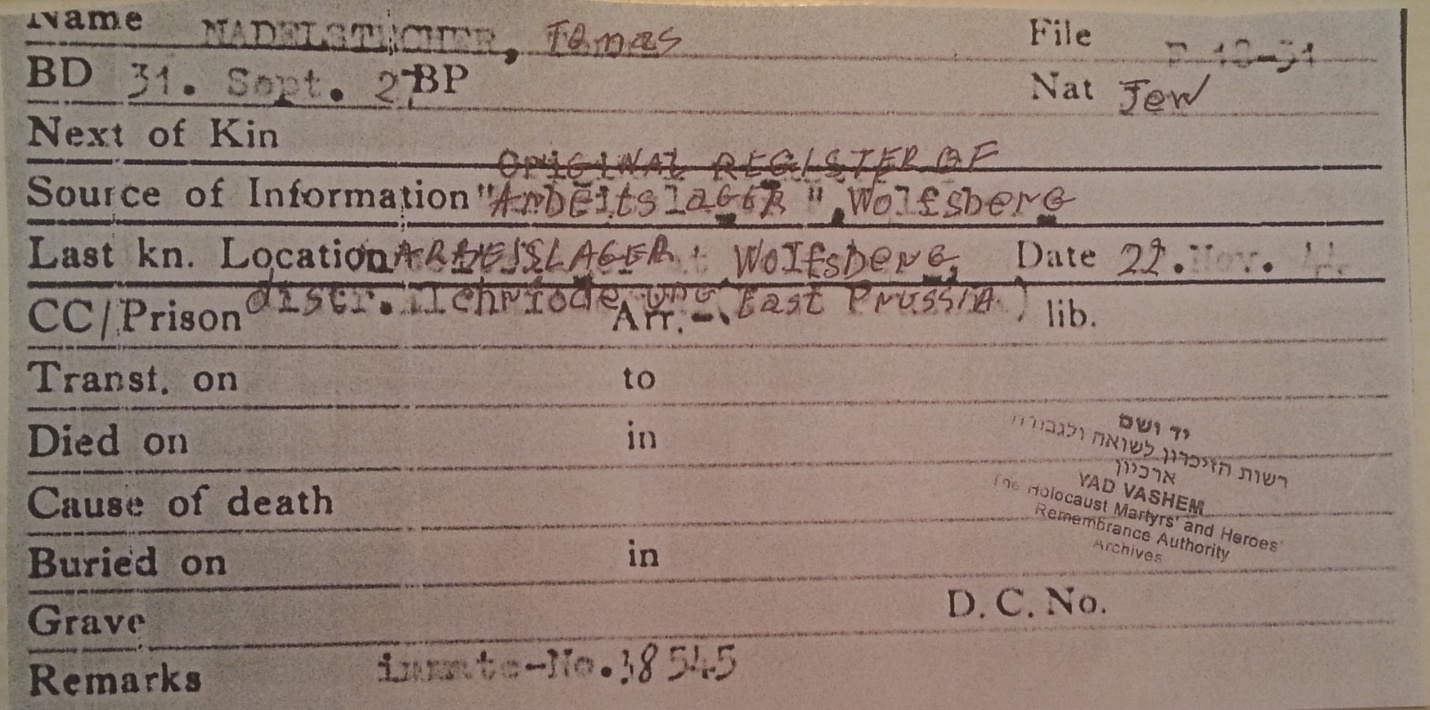 Name NADELSTECHER, Tamas File F 18-31
BD 31. Sept. 27 BP Nat Jew
Next of Kin
ORIGINAL REGISTER OF
Source of Information "Arbeitslager", Wolfsberg
Last kn. Location ARBEISLAGER Wolfsberg, Date 22. Nov. 44.
distr. (East Prussia)
CC/Prison Arr. lib.
Transt. on to
Died on in
Cause of death
Buried on in
Grave D. C. No.
Remarks inmate-No. 38545
יד ושם
רשות הזיכרון לשואה ולגבורה
ארכיון
YAD VASHEM
The Holocaust Martyrs' and Heroes'
Remembrance Authority
Archives